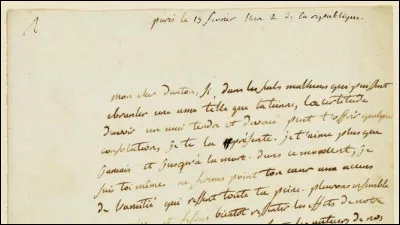 paris le 15 fevrier 2 de la republique.
mon cher Danton, si, dans les seuls malheurs qui puissent
ebranler une ame telle que la tienne, la certitude
d'avoir un ami tendre et devoué peut t'offrir quelque
consolation, je te la présente. je t'aime plus que
jamais et jusqu'à la mort. dans ce moment, je
suis toi même. ne ferme point ton cœur aux accens
de l'amitié qui ressent toute ta peine. pleurons ensemble
et bientôt ressentir les effets de notre
les auteurs de nos